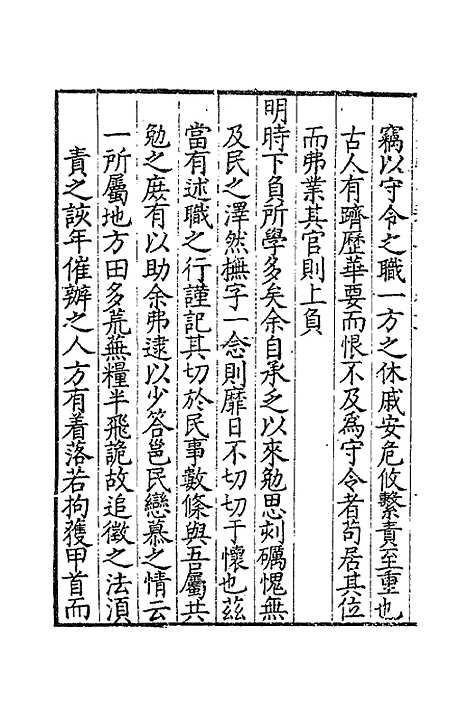 竊以守令之職一方之休戚安危攸繫責至重也
古人有躋歷華要而恨不及爲守令者苟居其位
而弗業其官則上負
明時下負所學多矣余自承乏以來勉思刻礪愧無
及民之澤然撫字一念則靡日不切切于懷也兹
當有述職之行謹記其切於民事數條與吾屬共
勉之庶有以助余弗逮以少答邑民戀慕之情云
一所屬地方田多荒蕪糧半飛詭故追徵之法湏
責之該年催辦之人方有着落若拘獲甲首而